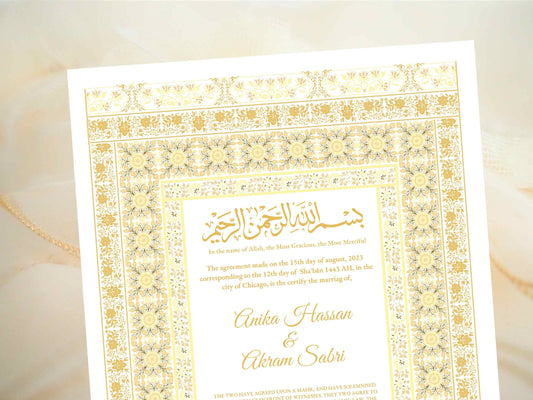 بسم الله الرحمن الرحيم
In the name of Allah, the Most Gracious, the Most Merciful
The agreement made on the 15th day of august, 2023
corresponding to the 12th day of Sha'bān 1443 AH, in the
city of Chicago, is the certify the marring of,
Anika Hassan
&
Akram Sabri
THE TWO HAVE AGREED UPON A MAHR, AND HAVE SOLEMNISED
IN FRONT OF WITNESSES, THEY TWO AGREE TO
LAW, THE